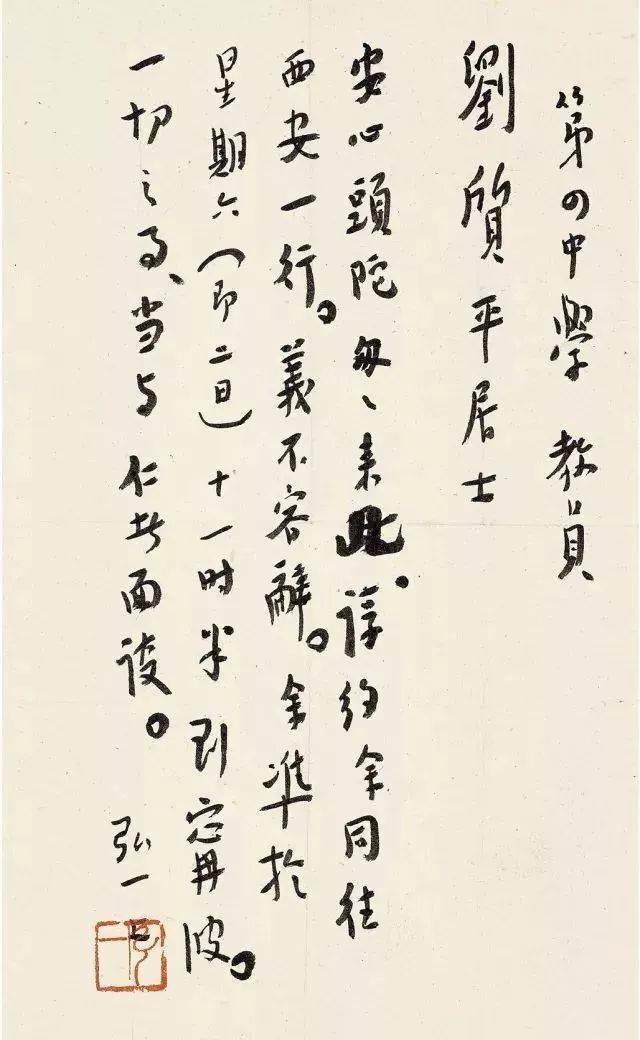 第四中學 教員
劉質平居士
安心頭陀匆、來此。諄約余同往
西安一行。義不容辭。余準於
星期六（即二日）十一时半到寗波。
一切之事、当与仁者面談。
弘一